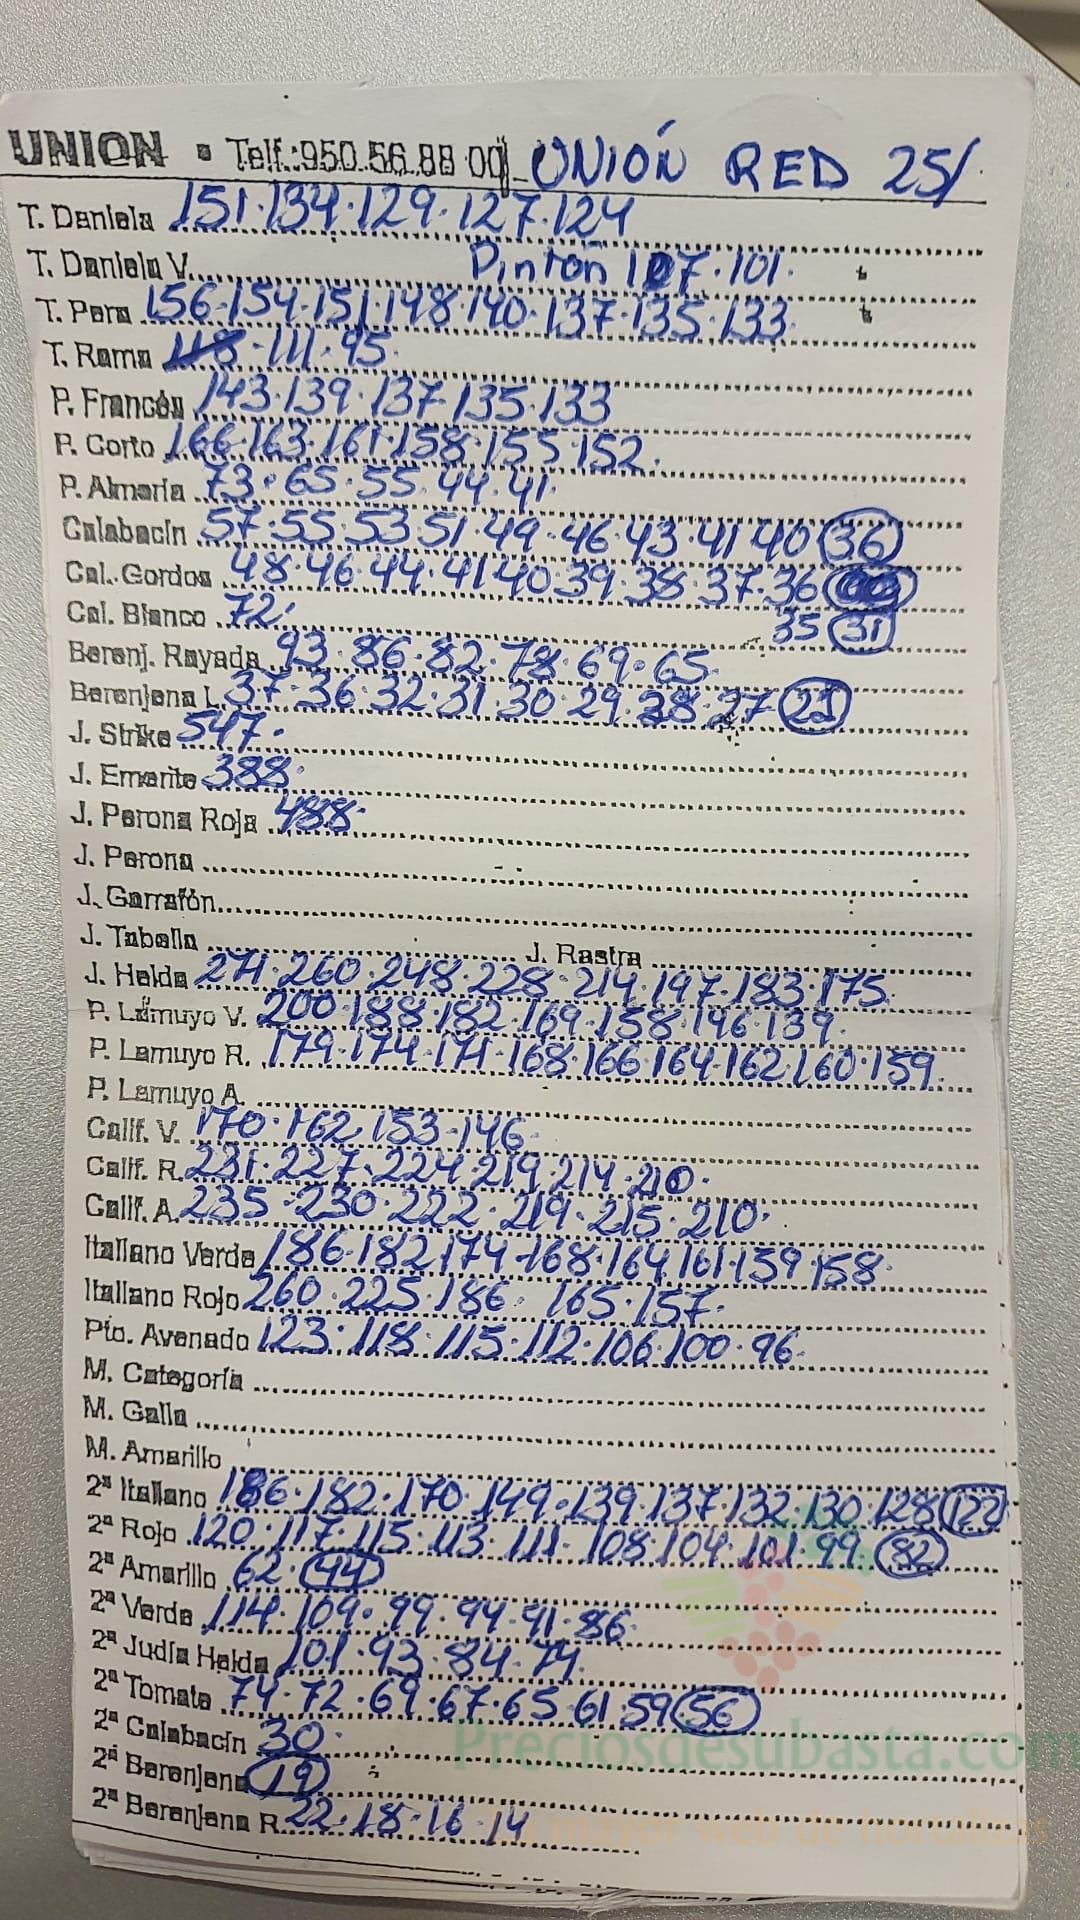 UNION • Telf.:950.56.88 00 UNIÓN RED 25/
T. Daniela 151·134·129·127·124
T. Daniela V. Pintón 107·101·
T. Pera 156·154·151·148·140·137·135·133
T. Rama 118·111·95·
P. Francés 143·139·137·135·133
P. Corto 166·163·161·158·155·152·
P. Almería 73·65·55·44·41·
Calabacín 57·55·53·51·49·46·43·41·40 36
Cal. Gordos 48·46·44·41·40·39·38·37·36
Cal. Blanco 72· 35 31
Berenj. Rayada 93·86·82·78·69·65·
Berenjena L. 37·36·32·31·30·29·28·27
J. Strike 547·
J. Emerite 388·
J. Perona Roja 488·
J. Perona
J. Garrafón
J. Tabella J. Rastra
J. Helda 271·260·248·228·214·197·183·175·
P. Lamuyo V. 200·188·182·169·158·146·139·
P. Lamuyo R. 179·174·171·168·166·164·162·160·159·
P. Lamuyo A.
Calif. V. 170·162·153·146·
Calif. R. 231·227·224·219·214·210·
Calif. A. 235·230·222·219·215·210·
Italiano Verde 186·182·174·168·164·161·159·158·
Italiano Rojo 260·225·186· 165·157·
Pto. Avenado 123·118·115·112·106·100·96·
M. Categoría
M. Galia
M. Amarillo
2ª Italiano 186·182·170·149·139·137·132·130·128 122
2ª Rojo 120·117·115·113·111·108·104·101·99 82
2ª Amarillo 62· 44
2ª Verde 114·109·99·94·91·86·
2ª Judía Helda 101·93·84·74·
2ª Tomate 74·72·69·67·65·61·59 56
2ª Calabacín 30·
2ª Berenjena 19
2ª Berenjena R. 22·18·16·14
Preciosdesubasta.com
La mayor web de hortalizas